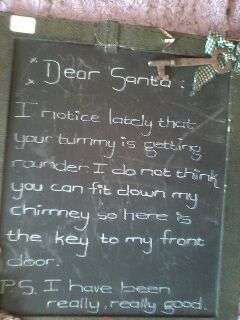 Dear Santa.
I notice lately that
your tummy is getting
rounder. I do not think
you can fit down my
chimney so here is
the key to my front
door.
P.S. I have been
really, really good.